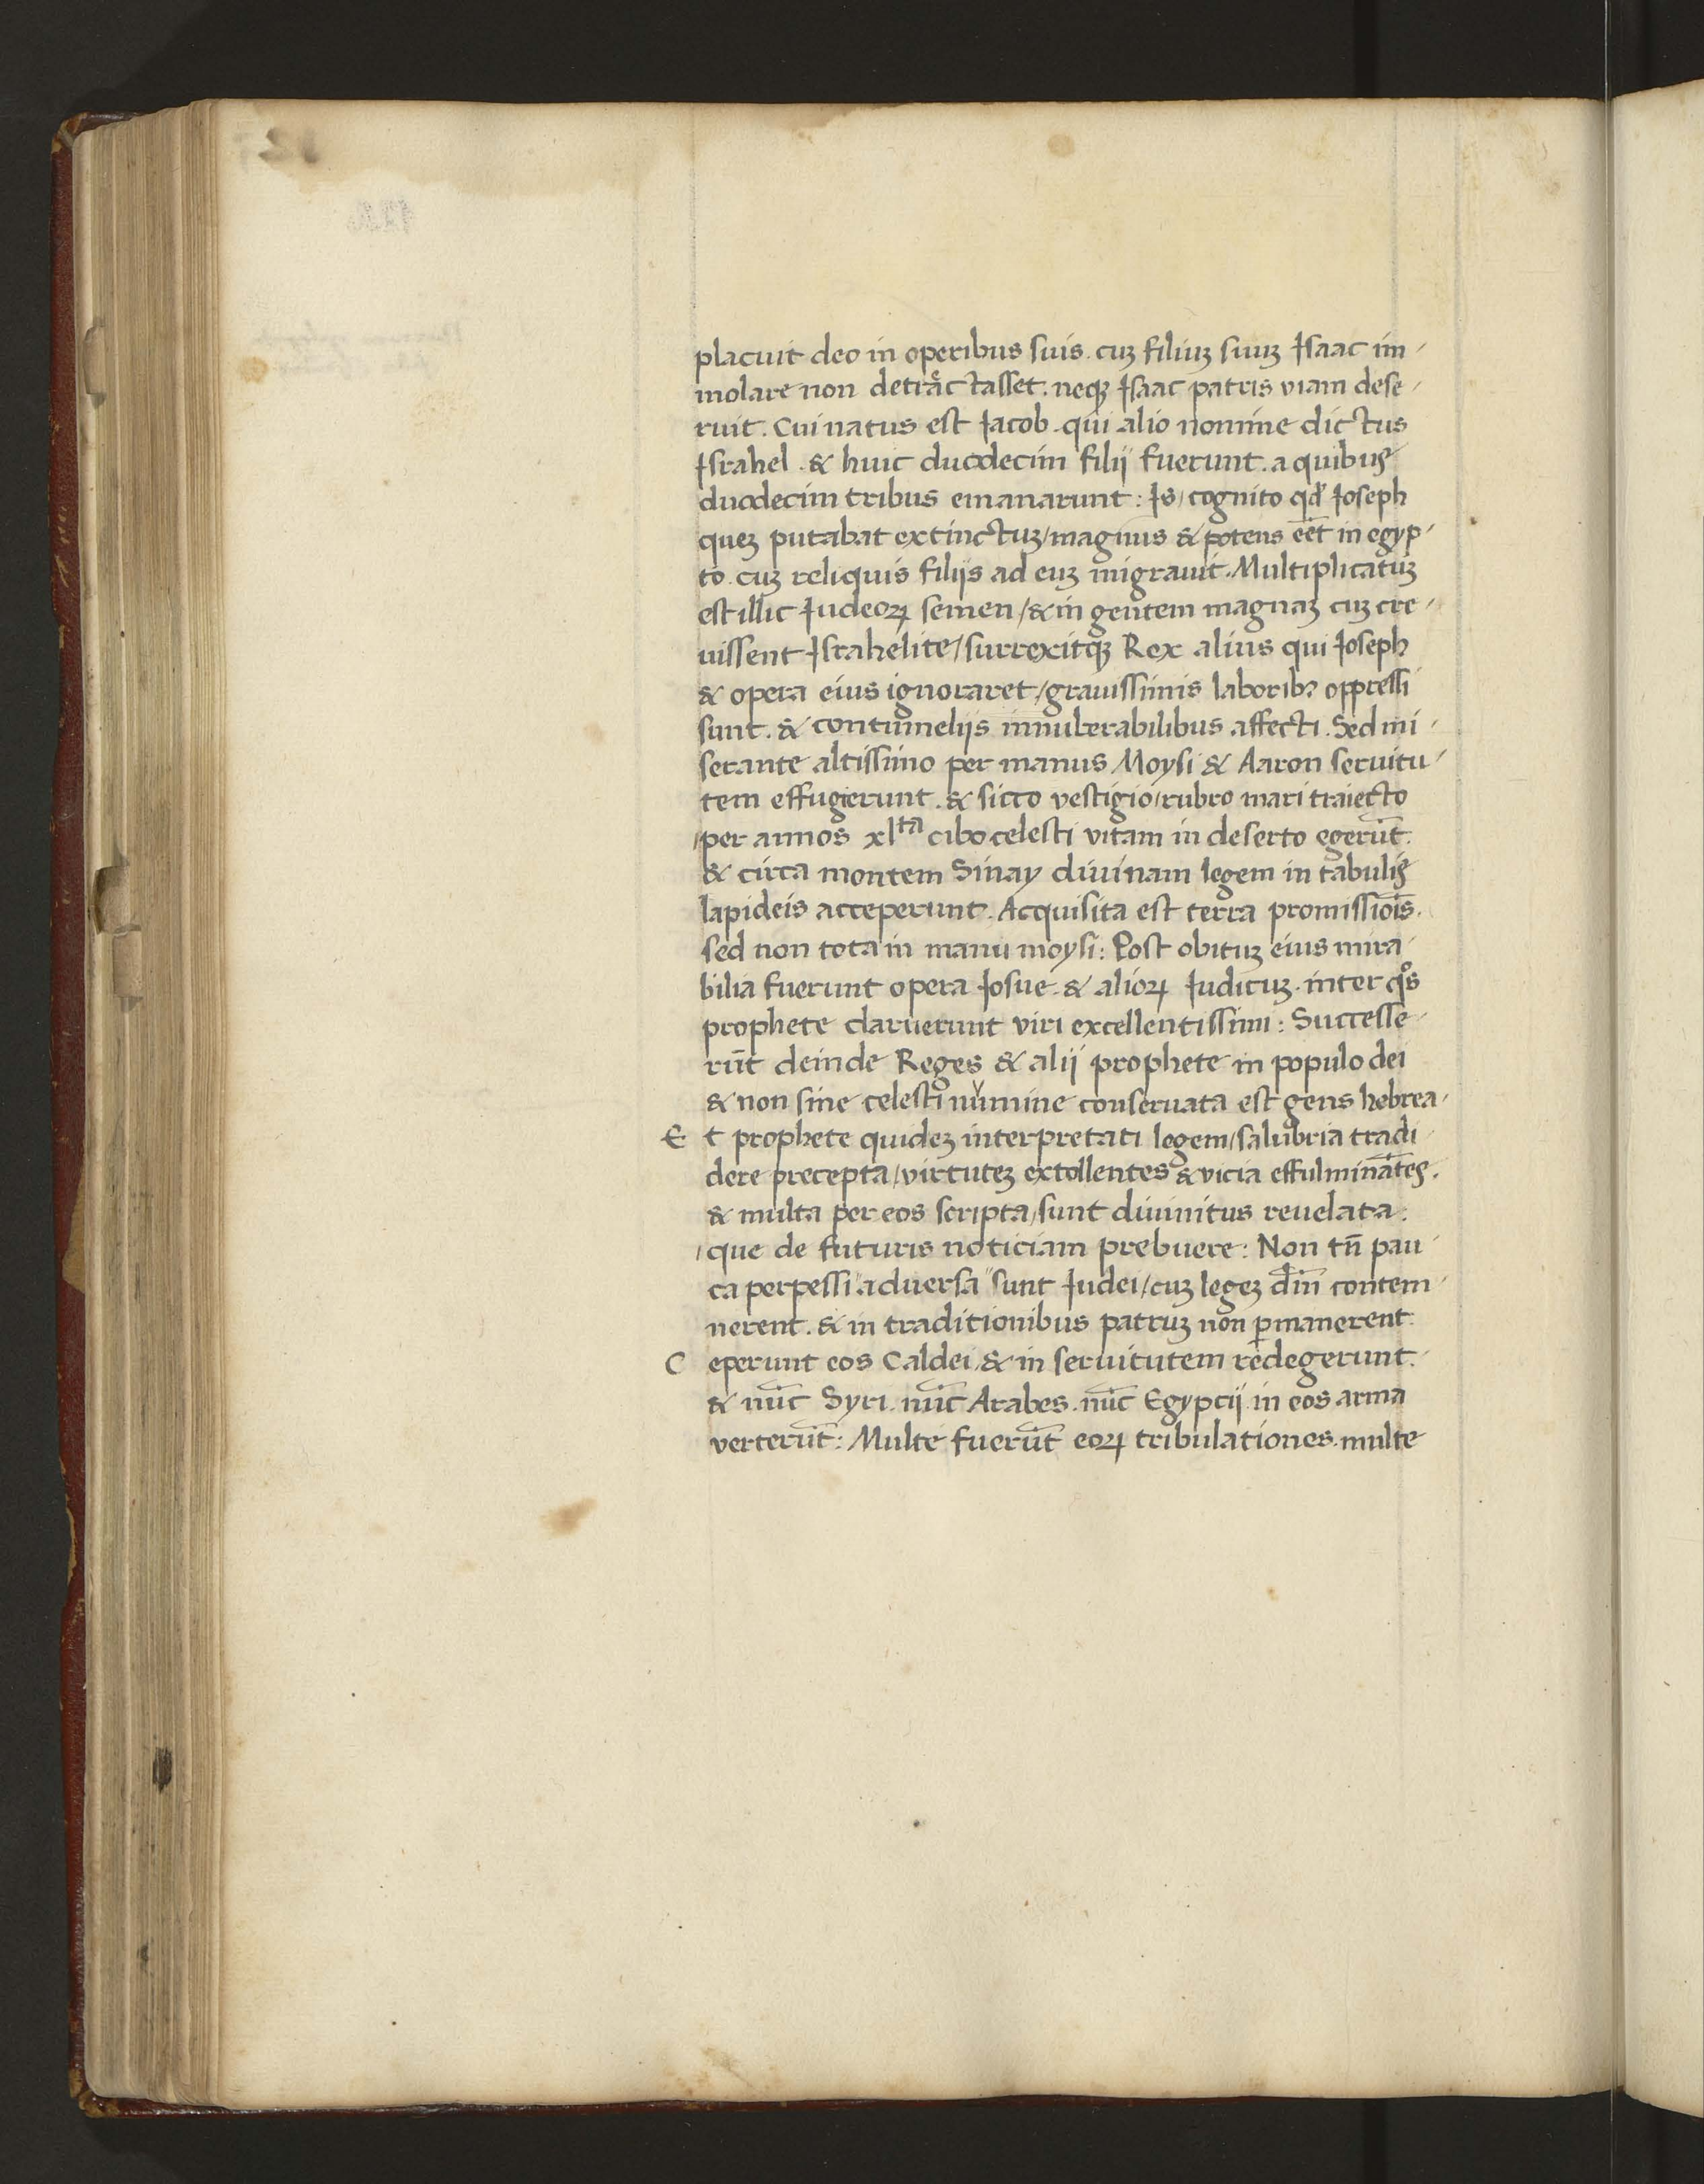 placuit deo in operibus suis. cuʒ filiuʒ suuʒ Isaac im-
molare non detractasset. neqʒ Isaac patris viam dese-
ruit. Cui natus est Iacob. qui alio nomine dictus
Israhel. & huic duodecim filij fuerunt. a quibus
duodecim tribus emanarunt: Is/ cognito qd Ioseph
queʒ putabat extinctuʒ/ magnus & potens eēt in egyp-
to. cuʒ reliquis filijs ad euʒ migrauit. Multiplicatuʒ
est illic Iudeoꝝ semen/ & in gentem magnaʒ cuʒ cre-
uissent Israhelite/ surrexitqʒ Rex alius qui Ioseph
& opera eius ignoraret/ grauissimis laboribʒ oppressi
sunt. & contumelijs innumerabilibus affecti. Sed mi-
serante altissimo per manus Moysi & Aaron seruitu-
tem effugierunt. & sicco vestigio/ rubro mari traiecto
/per annos xlᵗᵃ cibo celesti vitam in deserto egerūt.
& circa montem Sinay diuinam legem in tabulis
lapideis acceperunt. Acquisita est terra promissiōis.
sed non tota in manu moysi: Post obituʒ eius mira-
bilia fuerunt opera Iosue. & alioꝝ Iudicuʒ. inter qͦs
prophete claruerunt viri excellentissimi: Successe-
rūt deinde Reges & alij prophete in populo dei
& non sine celesti numine conseruata est gens hebrea.
Et prophete quideʒ interpretati legem/ salubria tradi-
dere precepta/ virtuteʒ extollentes & vicia effulminātes.
& multa per eos scripta/ sunt diuinitus reuelata.
/que de futuris noticiam prebuere: Non tn̄ pau-
ca perpessi "aduersa" sunt Iudei/ cuʒ legeʒ dīn contem-
nerent. & in traditionibus patruʒ non ꝑmanerent.
Ceperunt eos Caldei/ & in seruitutem redegerunt.
& nūc Syri. nūc Arabes. nūc Egypcij in eos arma
verterūt: Multe fuerūt eoꝝ tribulationes. multe